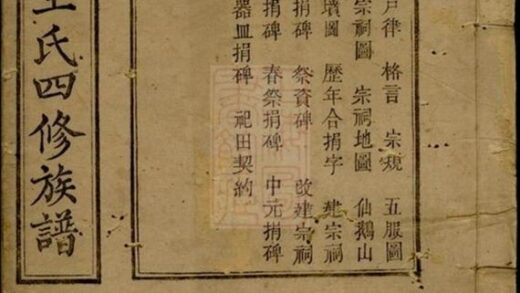 戶律 格言 宗規 五服圖
宗祠圖 宗祠地圖 仙鵝山
墳圖 歷年合捐字 建宗祠
捐碑 祭資碑 改建宗祠
捐碑 春祭捐碑 中元捐碑
器皿捐碑 祀田契約
王氏四修族譜